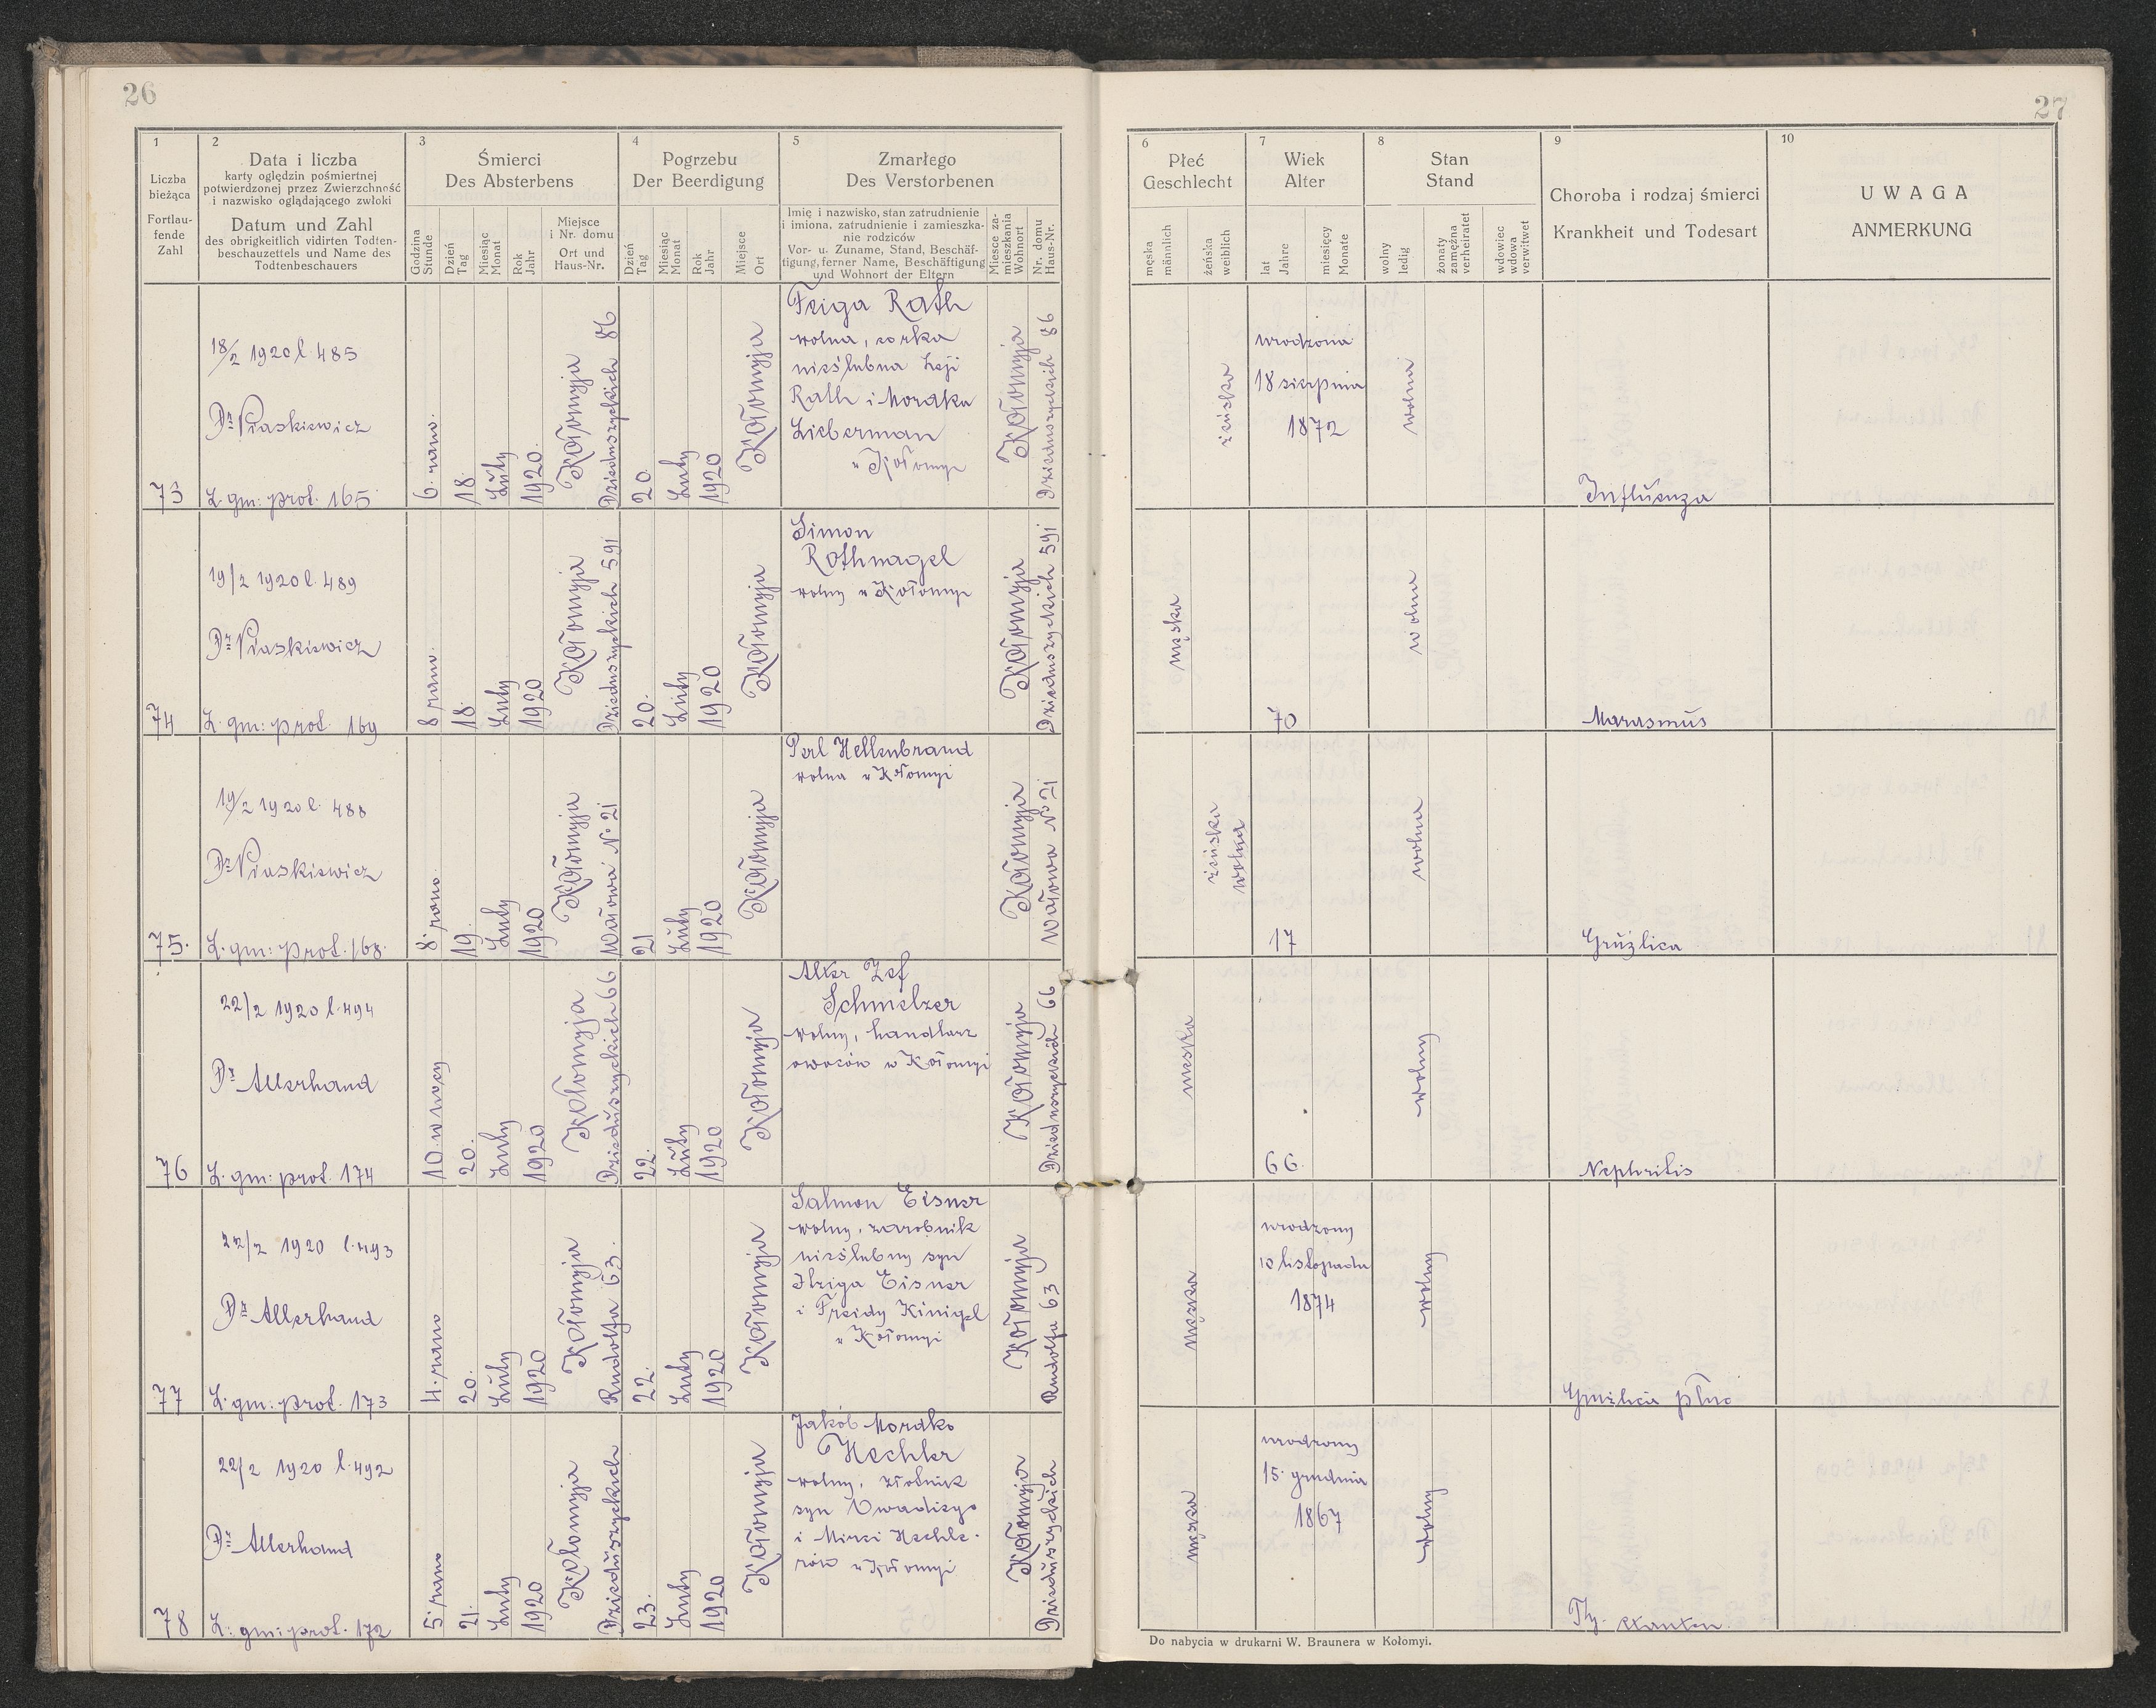 26
1
Liczba
bieżąca
Fortlau-
fende
Zahl
2
Data i liczba
karty oględzin pośmiertnej
potwierdzonej przez Zwierzchność
i nazwisko oglądającego zwłoki
Datum und Zahl
des obrigkeitlich vidirten Todten-
beschauzettels und Name des
Todtenbeschauers
3
Śmierci
Des Absterbens
Godzina
Stunde
Dzień
Tag
Miesiąc
Monat
Rok
Jahr
Miejsce
i Nr. domu
Ort und
Haus-Nr.
4
Pogrzebu
Der Beerdigung
Dzień
Tag
Miesiąc
Monat
Rok
Jahr
Miejsce
Ort
5
Zmarłego
Des Verstorbenen
Imię i nazwisko, stan zatrudnienie
i imiona, zatrudnienie i zamieszka-
nie rodziców
Vor- u. Zuname, Stand, Beschäf-
tigung, ferner Name, Beschäftigung
und Wohnort der Eltern
Miesce za-
mieszkania
Wohnort
Nr. domu
Haus-Nr.
73
18/2 1920 l. 485
Dr Piaskiewicz
L. gm: prot. 165
6. rano.
18.
Luty
1920.
Kołomyja
Dzieduszyckich 86
20.
Luty
1920
Kołomyja
Feiga Rath
wolna, corka
nieślubna Leji
Rath i Mordka
Lieberman
w Kołomyi
Kołomyja
Dzieduszyckich 86
74
19/2 1920 l. 489
Dr Piaskiewicz
L. gm: prot. 169
8 rano.
18.
Luty
1920
Kołomyja
Dzieduszyckich 591
20.
Luty
1920
Kołomyja
Simon
Rothnagel
wolny w Kołomyi
Kołomyja
Dzieduszyckich 591
75.
19/2 1920 l. 488
Dr Piaskiewicz
L. gm: prot. 168.
8. rano.
19.
Luty
1920
Kołomyja
Wałowa No 21
21
Luty
1920
Kołomyja
Perl Hellenbrand
wolna w Kołomyi
Kołomyja
Wałowa No 21
76
22/2 1920 l. 494
Dr Allerhand
L. gm: prot. 174
10. w nocy
20.
Luty
1920
Kołomyja
Dzieduszyckich 66
22.
Luty
1920
Kołomyja
Alter Zef
Schmelzer
wolny, handlarz
owoców w Kołomyi
Kołomyja
Dzieduszyckich 66
77
22/2 1920 l. 493
Dr Allerhand
L. gm: prot. 173
4. rano
20.
Luty
1920
Kołomyja
Rudolfa 63.
22.
Luty
1920
Kołomyja
Salmon Eisner
wolny, zarobnik
nieślubny syn
Eisner
i Freidy Kinigl
w Kołomyi
Kołomyja
Rudolfa 63
78
22/2 1920 l. 492
Dr Allerhand
L: gm: prot. 172
5. rano
21.
Luty
1920
Kołomyja
Dzieduszyckich
23.
Luty
1920
Kołomyja
Jakób Mordko
Hechler
wolny, złotnik
syn Owadiego
i Mirci Hechle-
rów w Kołomyi
Kołomyja
Dzieduszyckich
27
6
Płeć
Geschlecht
męska
männlich
żeńska
weiblich
7
Wiek
Alter
lat
Jahre
miesięcy
Monate
8
Stan
Stand
wolny
ledig
żonaty
zamężna
verheiratet
wdowiec
wdowa
verwitwet
9
Choroba i rodzaj śmierci
Krankheit und Todesart
10
UWAGA
ANMERKUNG
żeńska
urodzona
18 sierpnia
1872
wolna
Influenza
męska
70
wolna
Marasmus
żeńska
wolna
17
wolna
Gruźlica
męska
66.
wolny
Nephritis
męska
urodzony
10 listopada
1874
wolny
Gruźlica płuc
męska
urodzony
15. grudnia
1867
wolny
Do nabycia w drukarni W. Braunera w Kołomyi.